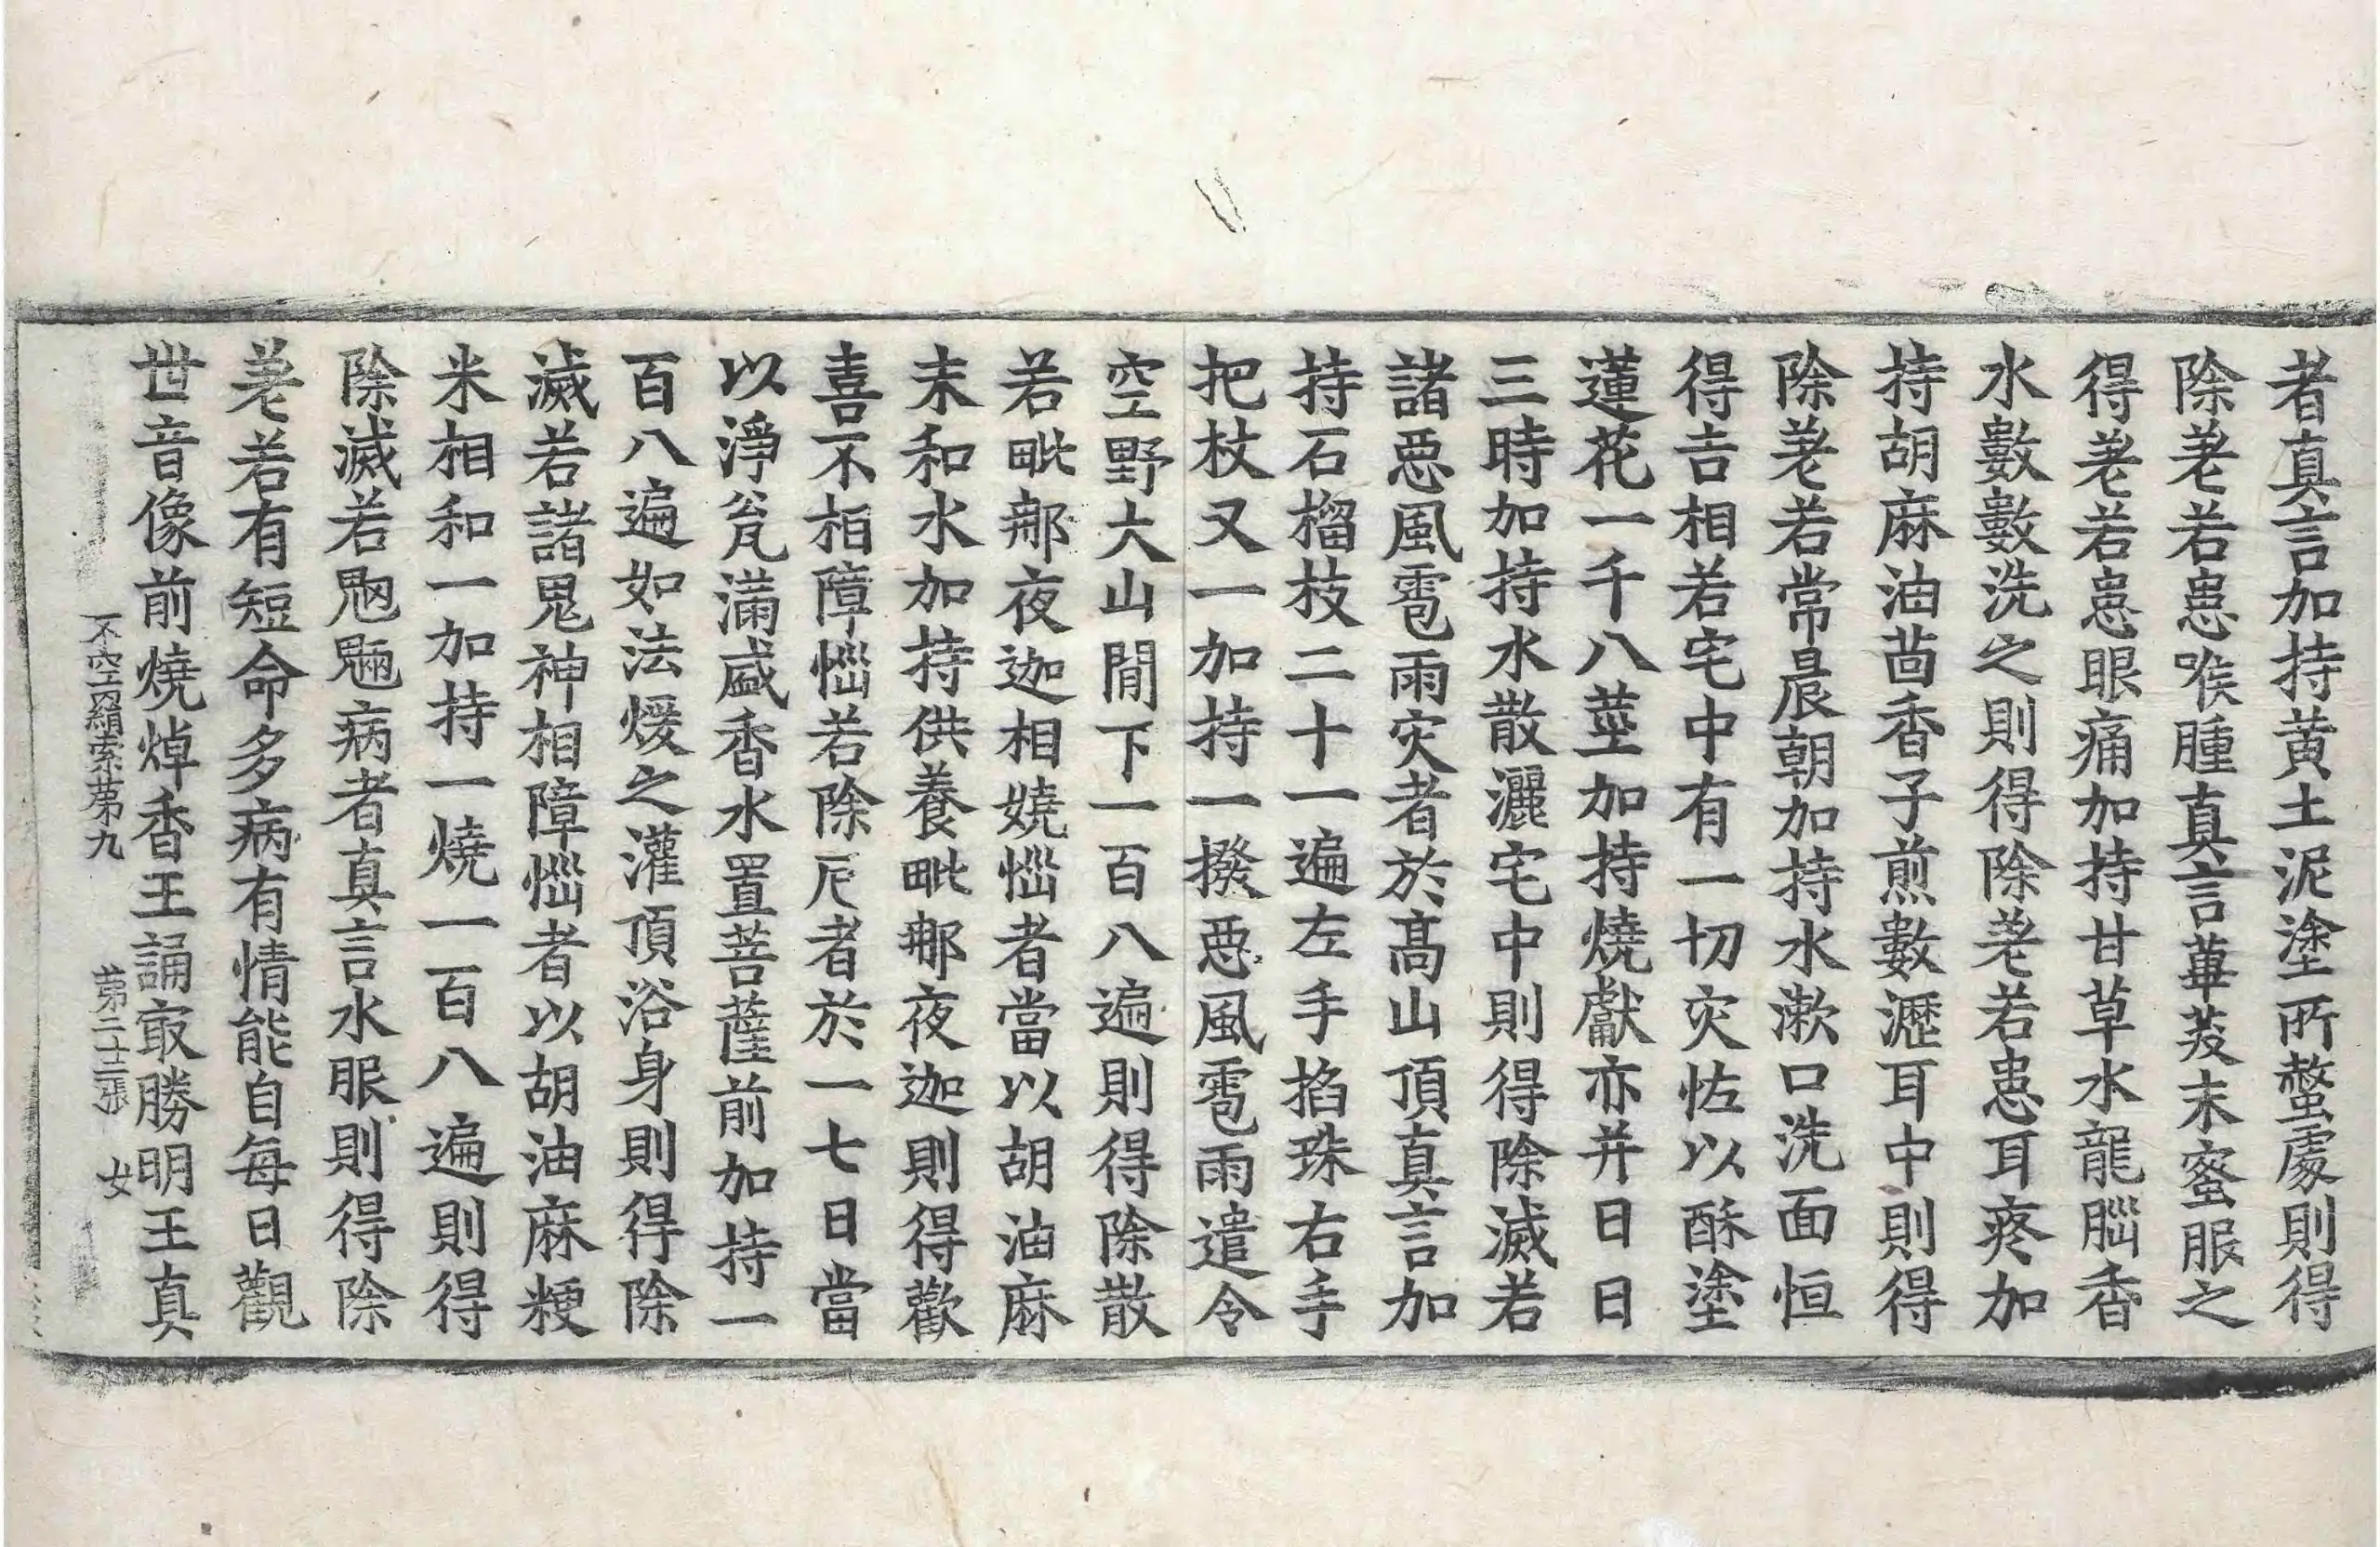 者真言加持黄土泥塗所螫處則得
除差若患喉腫真言蓽茇末蜜服之
得差若患眼痛加持甘草水龍腦香
水數數洗之則得除差若患耳疼加
持胡麻油茴香子煎數瀝耳中則得
除差若常晨朝加持水漱口洗面恒
得吉相若宅中有一切灾恠以酥塗
蓮花一千八莖加持燒獻亦并日日
三時加持水散灑宅中則得除滅若
諸惡風雹雨灾者於高山頂真言加
持石榴枝二十一遍左手掐珠右手
把杖又一加持一撥惡風雹雨遣令
空野大山閒下一百八遍則得除散
若毗那夜迦相嬈惱者當以胡油麻
末和水加持供養毗那夜迦則得歡
喜不相障惱若除戹者於一七日當
以淨瓮滿盛香水置菩薩前加持一
百八遍如法煖之灌頂浴身則得除
滅若諸鬼神相障惱者以胡油麻粳
米相和一加持一燒一百八遍則得
除滅若魍魎病者真言水服則得除
差若有短命多病有情能自每日觀
世音像前燒焯香王誦㝡勝明王真
不空羂索苐九 苐二十二張 女